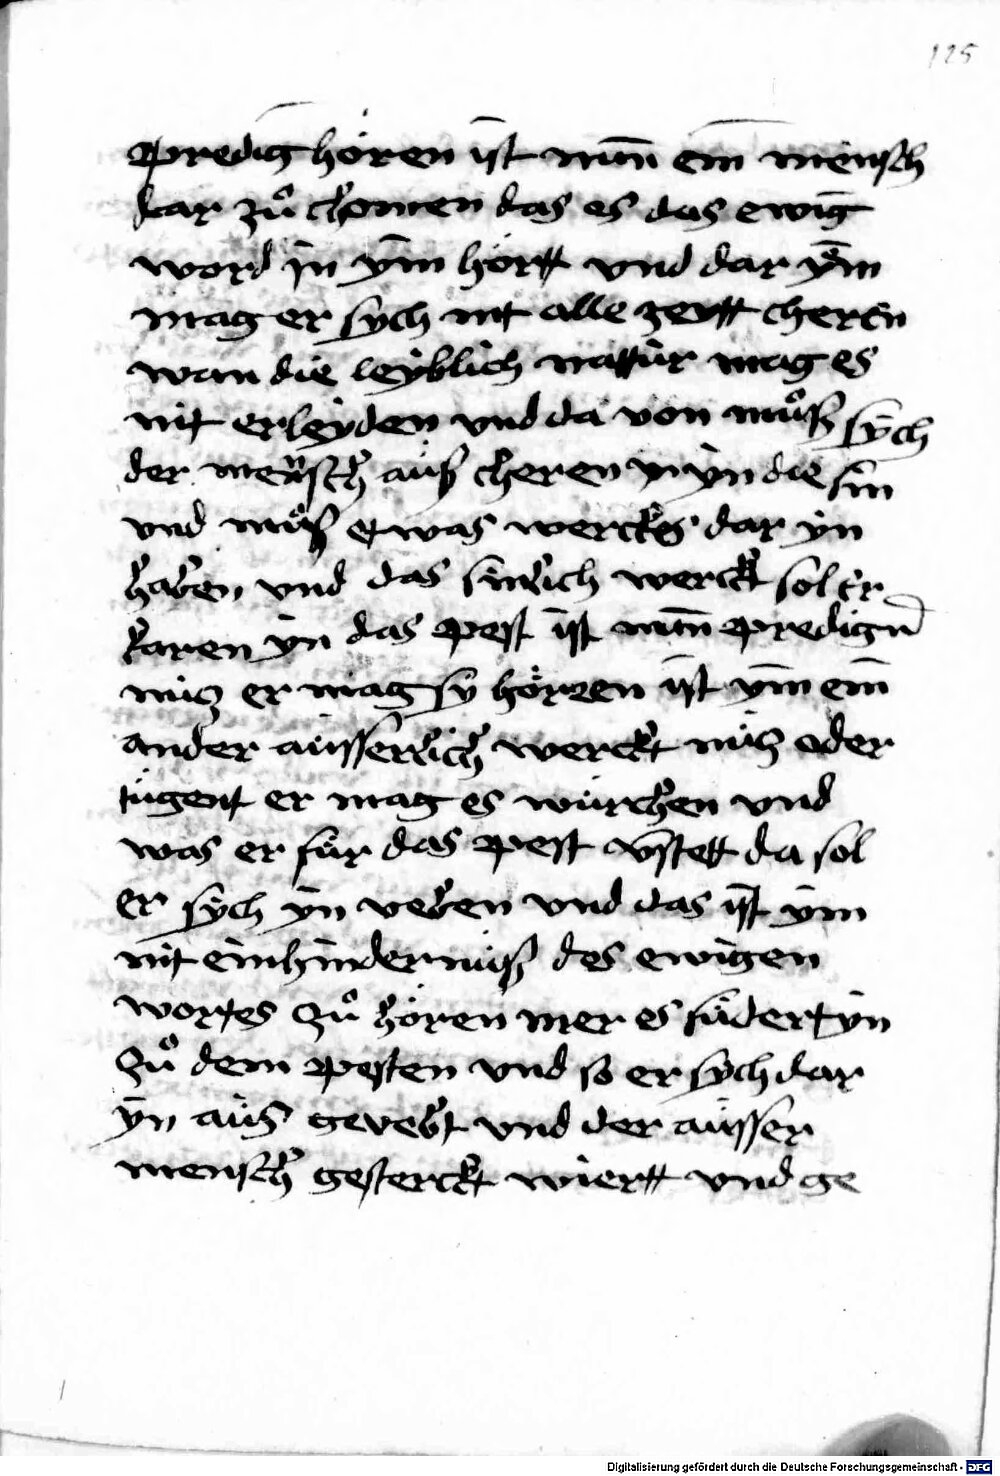 125
predig hören ist nun ein mensch
dar zů chomen das es das ewig
word in ym hört vnd dar ym
mag er sych nit alle zeytt cheren
wan die leyblich nattur mag es
nit erleyden vnd da von můß sych
der mensch auß cheren yn die sin
vnd můß etwas wercks dar yn
haben vnd das sinlich werck sol er
karen yn das pest ist nun predign
nücz er mag sy hören ist ym ein
ander ausserlich werckt nücz oder
tugent er mag es würchen vnd
was er für das pest vstett da sol
er sych yn veben vnd das ist ym
nit ein hinderniuß des ewigen
wortes zů hören mer es füdert yn
zů dem pesten vnd so er sych dar
yn aus gevebt vnd der ausser
mensch gesterckt wiertt vnd ge
Digitalisierung gefördert durch die Deutsche Forschungsgemeinschaft - DFG